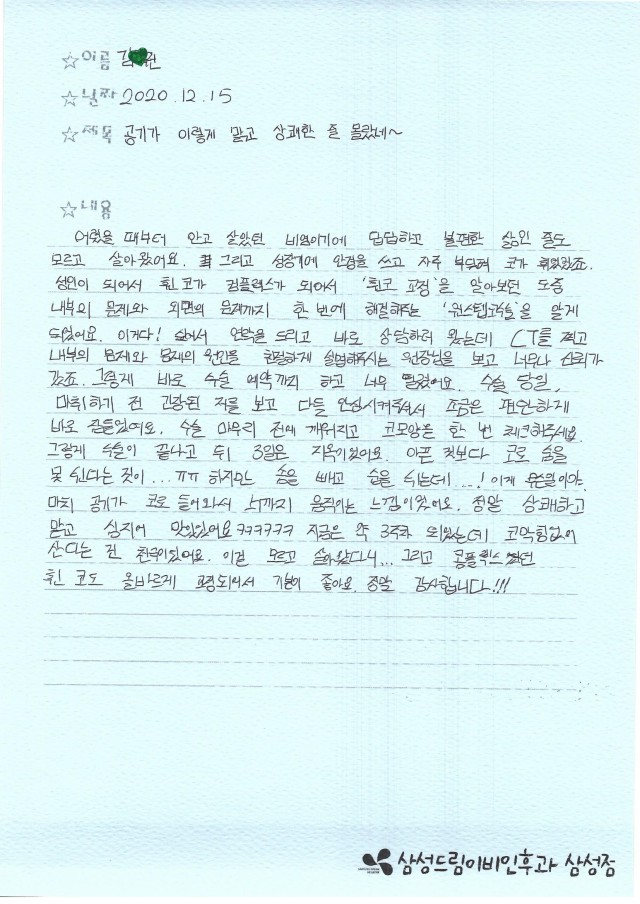 ☆이름 김 권
☆날짜 2020.12.15
☆제목 공기가 이렇게 맑고 상쾌한 줄 몰랐네~
☆내용
어렸을 때부터 안고 살았던 비염이기에 답답하고 불편한 삶인 줄도
모르고 살아왔어요. 그리고 성장기에 안경을 쓰고 자주 부딪혀 코가 휘었었죠.
성인이 되어서 휜코가 컴플렉스가 되어서 '휜코 교정'을 알아보던 도중
내부의 문제와 외면의 문제까지 한 번에 해결해주는 '원스텝코수술'을 알게
되었어요. 이거다! 싶어서 연락을 드리고 바로 상담하러 왔는데 CT를 찍고
내부의 문제와 문제의 원인을 친절하게 설명해주시는 원장님을 보고 너무나 신뢰가
갔죠. 그렇게 바로 수술 예약까지 하고 너무 떨렸어요. 수술 당일,
마취하기 전 긴장된 저를 보고 다들 안심시켜주셔서 조금은 편안하게
바로 잠들었어요. 수술 마무리 전에 깨워지고 코모양을 한 번 체크해주세요.
그렇게 수술이 끝나고 뒤 3일은 지옥이었어요. 아픈 것보다 코로 숨을
못 쉰다는 것이... ㅠㅠ 하지만 솜을 빼고 숨을 쉬는데...! 이게 무슨일이야.
마치 공기가 코로 들어와서 뇌까지 움직이는 느낌이었어요. 정말 상쾌하고
맑고 심지어 맛있었어요 ㅋㅋㅋㅋㅋㅋ 지금은 약 3주차 되었는데 코막힘없이
산다는 건 천국이었어요. 이걸 모르고 살아왔다니... 그리고 콤플렉스였던
휜 코도 올바르게 교정되어서 기분이 좋아요. 정말 감사합니다!!!
삼성드림이비인후과 삼성점